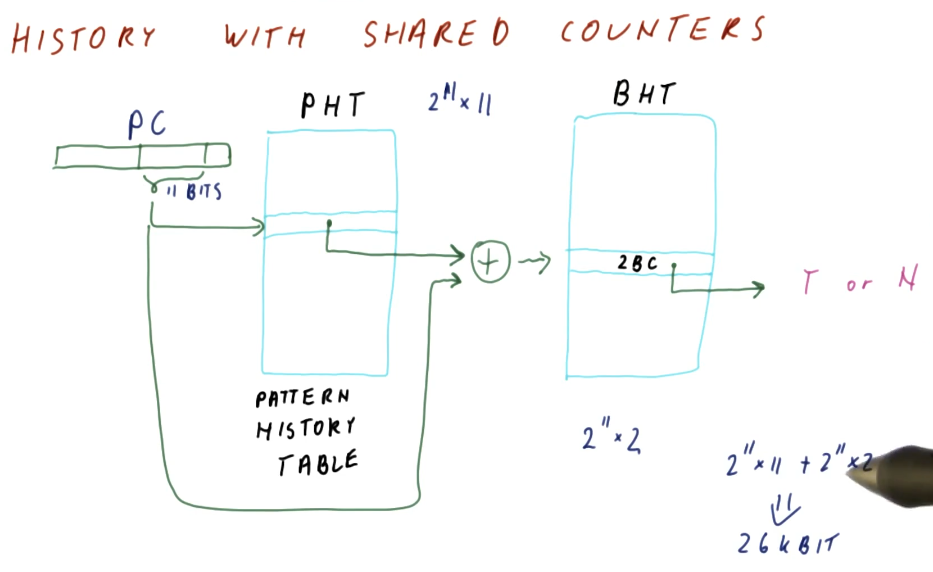 HISTORY WITH SHARED COUNTERS
PC
11 BITS
PHT
2^11 x 11
PATTERN
HISTORY
TABLE
+
BHT
2BC
T or N
2^11 x 2
2^11 x 11 + 2^11 x 2
26 k BIT